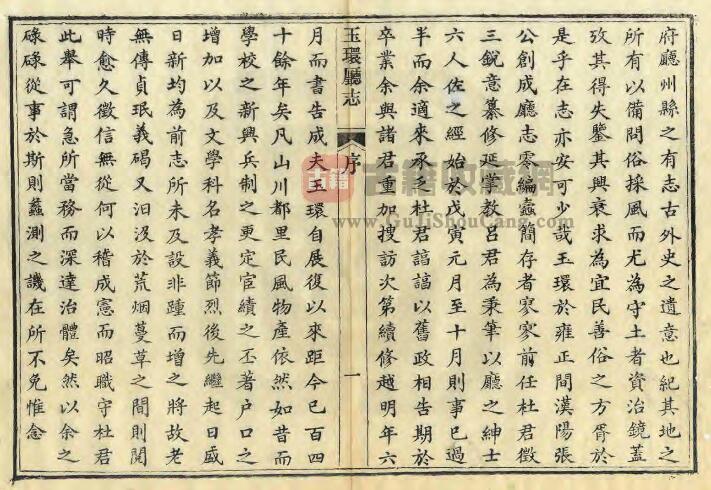 府廳州縣之有志古外史之遺意也紀其地之
所有以備問俗採風而尤為守土者資治鏡蓋
攷其得失鑒其興衰求為宜民善俗之方胥於
是乎在志亦安可少哉玉環於雍正間漢陽張
公創成廳志零編蠹簡存者寥寥前任杜君徵
三銳意纂修延掌教呂君為秉筆以廳之紳士
六人佐之經始於戊寅元月至十月則事已過
半而余適來承乏杜君諄諄以舊政相告期於
卒業余與諸君重加搜訪次第續修越明年六
玉環廳志
序
一
月而書告成夫玉環自展復以來距今已百四
十餘年矣凡山川都里民風物產依然如昔而
學校之新興兵制之更定宦績之丕著户口之
增加以及文學科名孝義節烈後先繼起日盛
日新均為前志所未及設非踵而增之將故老
無傳貞珉義碣又汩沒於荒烟蔓草之間則閱
時愈久徵信無從何以稽成憲而昭職守杜君
此舉可謂急所當務而深達治體矣然以余之
碌碌從事於斯則蠡測之譏在所不免惟念
古籍
古籍收藏網
www.GuJiShouCang.com